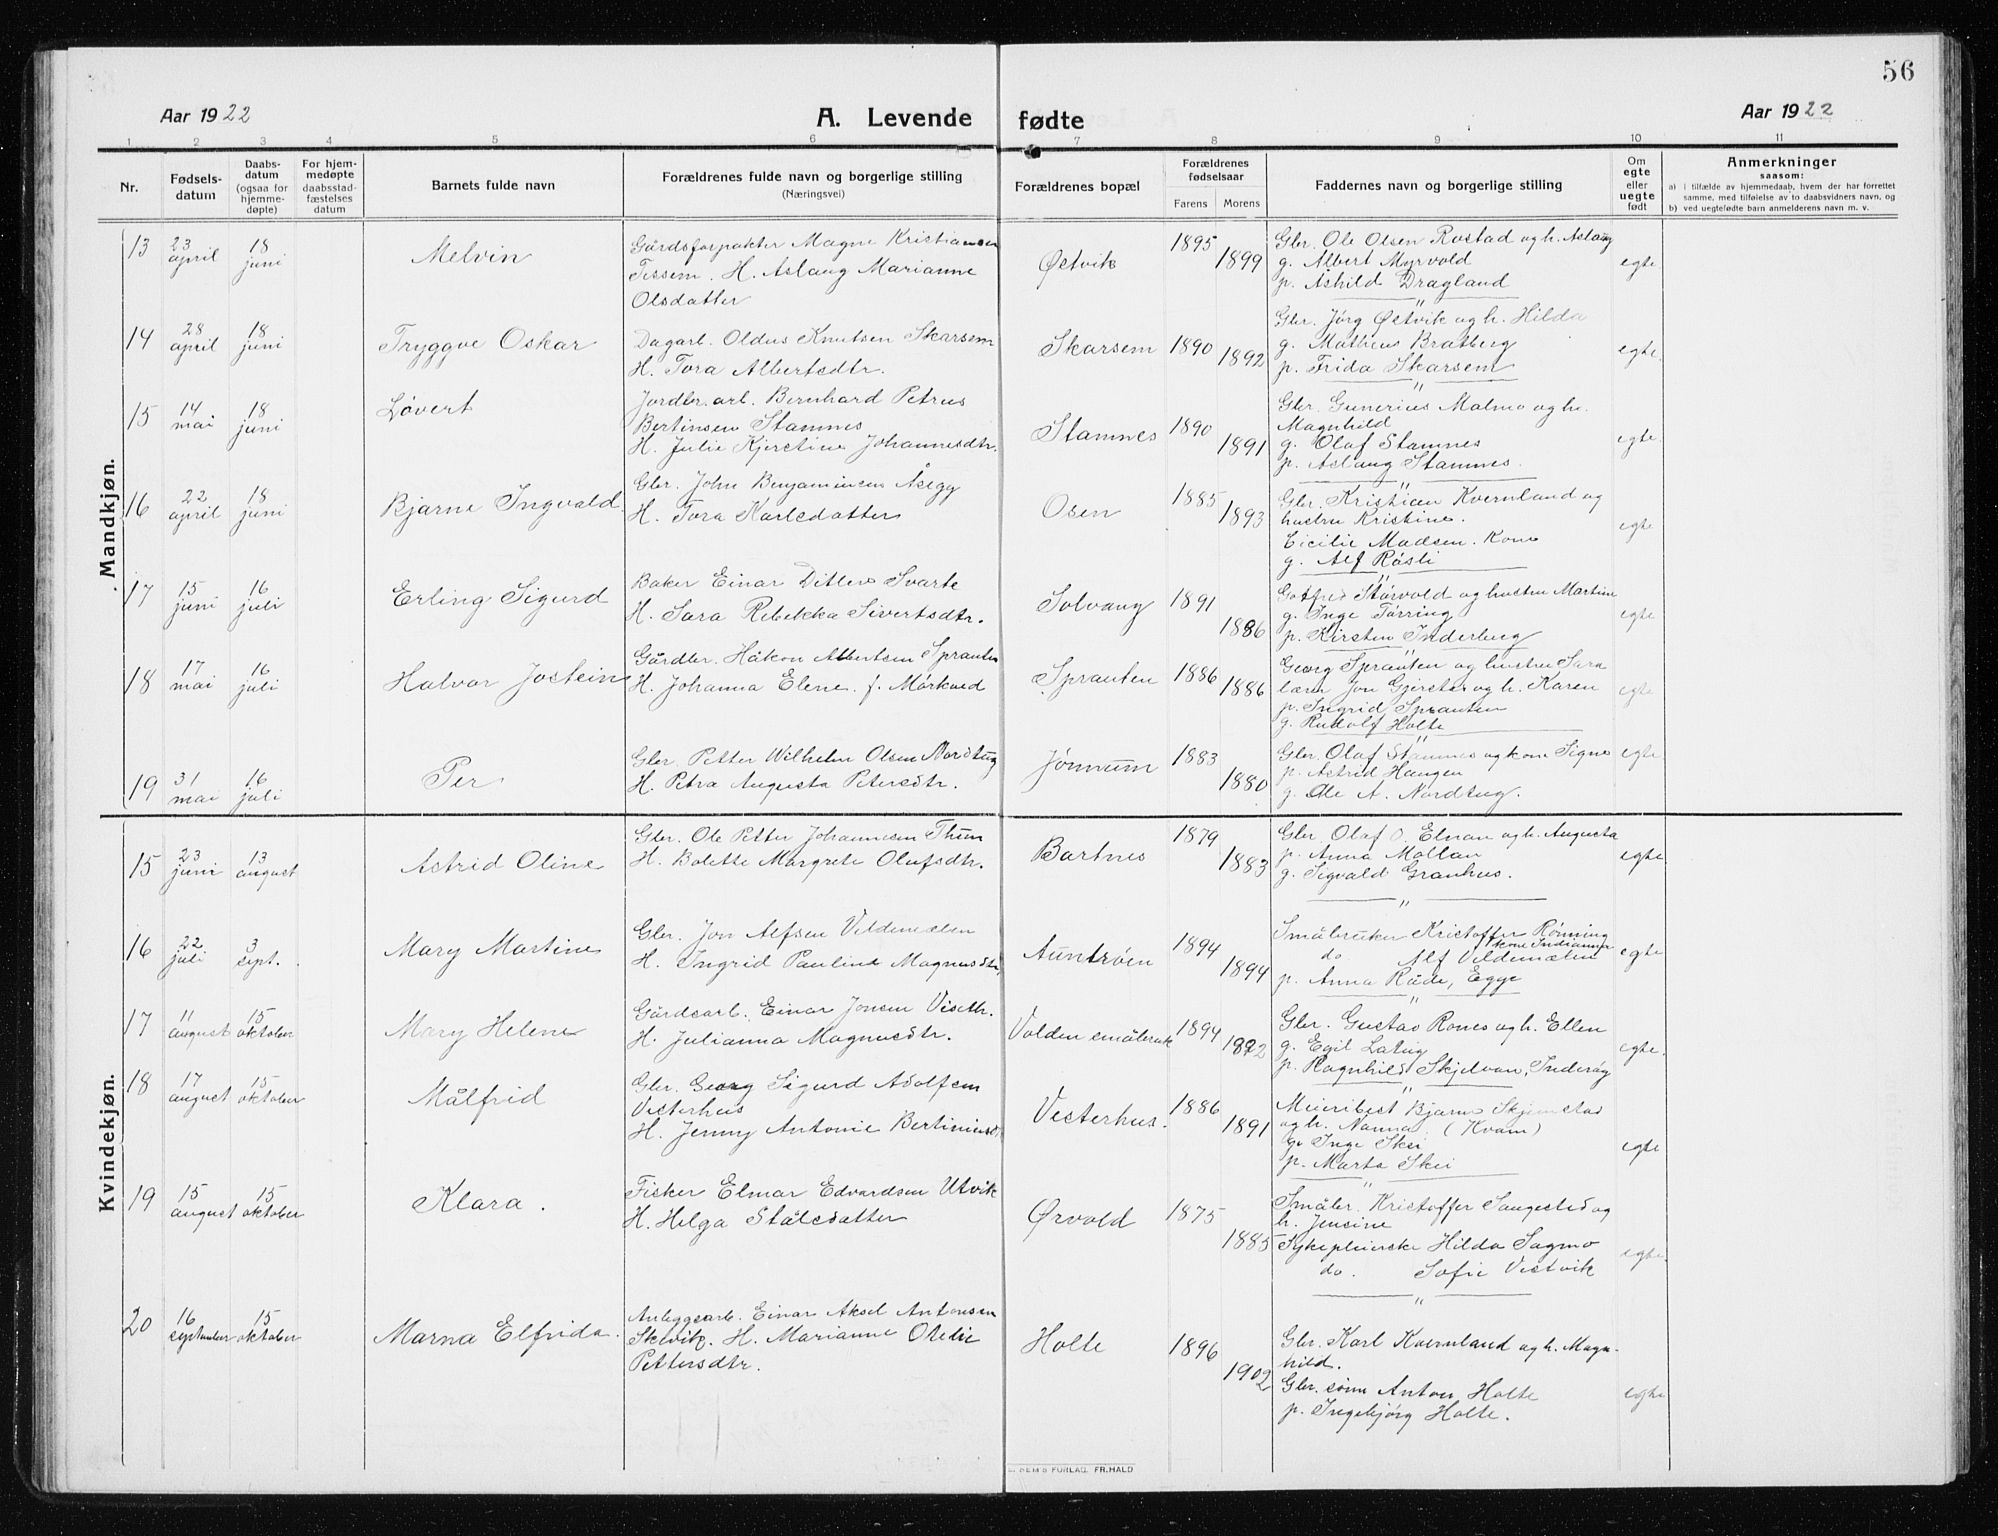 56
Aar 1922
A. Levende fødte
Aar 1922
1 2 3 4 5 6 7 8 9 10 11
Nr.
Fødsels-
datum
Daabs-
datum
(ogsaa for
hjemme-
døpte)
For hjem-
medøpte
daabsstad-
fæstelses
datum
Barnets fulde navn
Forældrenes fulde navn og borgerlige stilling
(Næringsvei)
Forældrenes bopæl
Forældrenes
fødselsaar
Farens Morens
Faddernes navn og borgerlige stilling
Om
egte
eller
uegte
født
Anmerkninger
saasom:
a) i tilfælde av hjemmedaab, hvem der har forrettet
samme, med tilføielse av to daabsvidners navn, og
b) ved uegtefødte barn anmelderens navn m. v.
Mandkjøn.
13 23 april 18 juni Melvin
Gårdsforpakter Magne Kristiansen
Tessem. H. Aslaug Marianne
Olsdatter
Østvik 1895 1899
Gbr. Ole Olsen Rostad og h. Aslaug
g. Albert Myrvold
p. Åshild Dragland
egte
14 28 april 18 juni Tryggve Oskar
Dagarb. Oldus Knutsen Skarsem
H. Tora Albertsdtr.
Skarsem 1890 1892
Gbr. Jørg Østvik og h. Hilda
g. Matheus Bratberg
p. Frida Skarsem
egte
15 14 mai 18 juni Løvert
Jordbr. arb. Bernhard Petrus
Bertinsen Stamnes
H. Julie Kjerstine Johannesdtr.
Stamnes 1890 1891
Gbr. Gunerius Malmo og h.
Magnhild
g. Olaf Stamnes
p. Aslaug Stamnes.
egte
16 22 april 18 juni Bjarne Ingvald
Gbr. John Benjaminsen Åsegg
H. Tora Karlsdatter
Osen 1885 1893
Gbr. Kristian Kvernland og
hustru Kristine.
Cicilie Madsen. Kone
g. Alf Røsli
egte
17 15 juni 16 juli Erling Sigurd
Baker Einar Ditlev Svarte
H. Sara Rebekka Sivertsdtr.
Solvang 1891 1886
Gotfred Størvold og hustru Martine
g. Inge Tørring
p. Kirsten Inderberg
egte
18 17 mai 16 juli Halvor Jostein
Gårdbr. Håkon Albertsen Sprauten
H. Johanna Elene f. Mørkved
Sprauten 1886 1886
Georg Sprauten og hustru Sara
lærer Jon Gjerstar og h. Karen
p. Ingrid Sprauten
g. Rudolf Holte
egte
19 31 mai 16 juli Per
Gbr. Petter Wilhelm Olsen Nordtug
H. Petra Augusta Petersdtr.
Jønnum 1883 1880
Gbr. Olaf Stamnes og kone Signe
p. Astrid Haugen
g. Ole A. Nordtug.
egte
Kvindekjøn.
15 23 juni 13 august Astrid Oline
Gbr. Ole Petter Johannesen Thun
H. Bolette Margrete Olufsdtr.
Bartnes 1879 1883
Gbr. Olaf O. Elnan og h. Augusta
p. Anna Mollan
g. Sigvald Granhus.
egte
16 22 juli 3 sept. Mary Martine
Gbr. Jon Alfsen Vildemelen
H. Ingrid Pauline Magnusdtr.
Auntrøen 1894 1894
Småbruker Kristoffer Rønning
kone Indianna
do Alf Vildemælen
p. Anna Råde, Egge
egte
17 11 august 15 oktober Mary Helene
Gårdsarb. Einar Jonsen Viseth.
H. Julianna Magnusdtr.
Volden småbruk 1894 1892
Gbr. Gustav Rones og h. Ellen
g. Egil Latug
p. Ragnhild Skjelvan, Inderøy
egte.
18 17 august 15 oktober Målfrid
Gbr. Georg Sigurd Adolfsen
Vesterhus
H. Jenny Antonie Bertiniusd.
Vesterhus. 1886 1891
Meieribest Bjarne Skjemstad
og h. Nanna. (Kvam)
g. Inge Skei
p. Marta Skei
egte
19 15 august 15 oktober Klara.
Fisker Elmar Edvardsen Utvik
H. Helga Stålesdatter
Ørvold 1875 1885
Småbr. Kristoffer Saugestad og
h. Jensine
Sykepleierske Hilda Sagmo
do. Sofie Vestvik
egte.
20 16 september 15 oktober Marna Elfrida.
Anleggsarb. Einar Aksel Antonsen
Skevik. H. Marianne Otelie
Pettersdtr.
Holte 1896 1902
Gbr. Karl Kvernland og h. Magn-
hild.
Gbr. sønn Anton Holte
p. Ingebjørg Holte.
egte
SEM'S FORLAG, FR.HALD